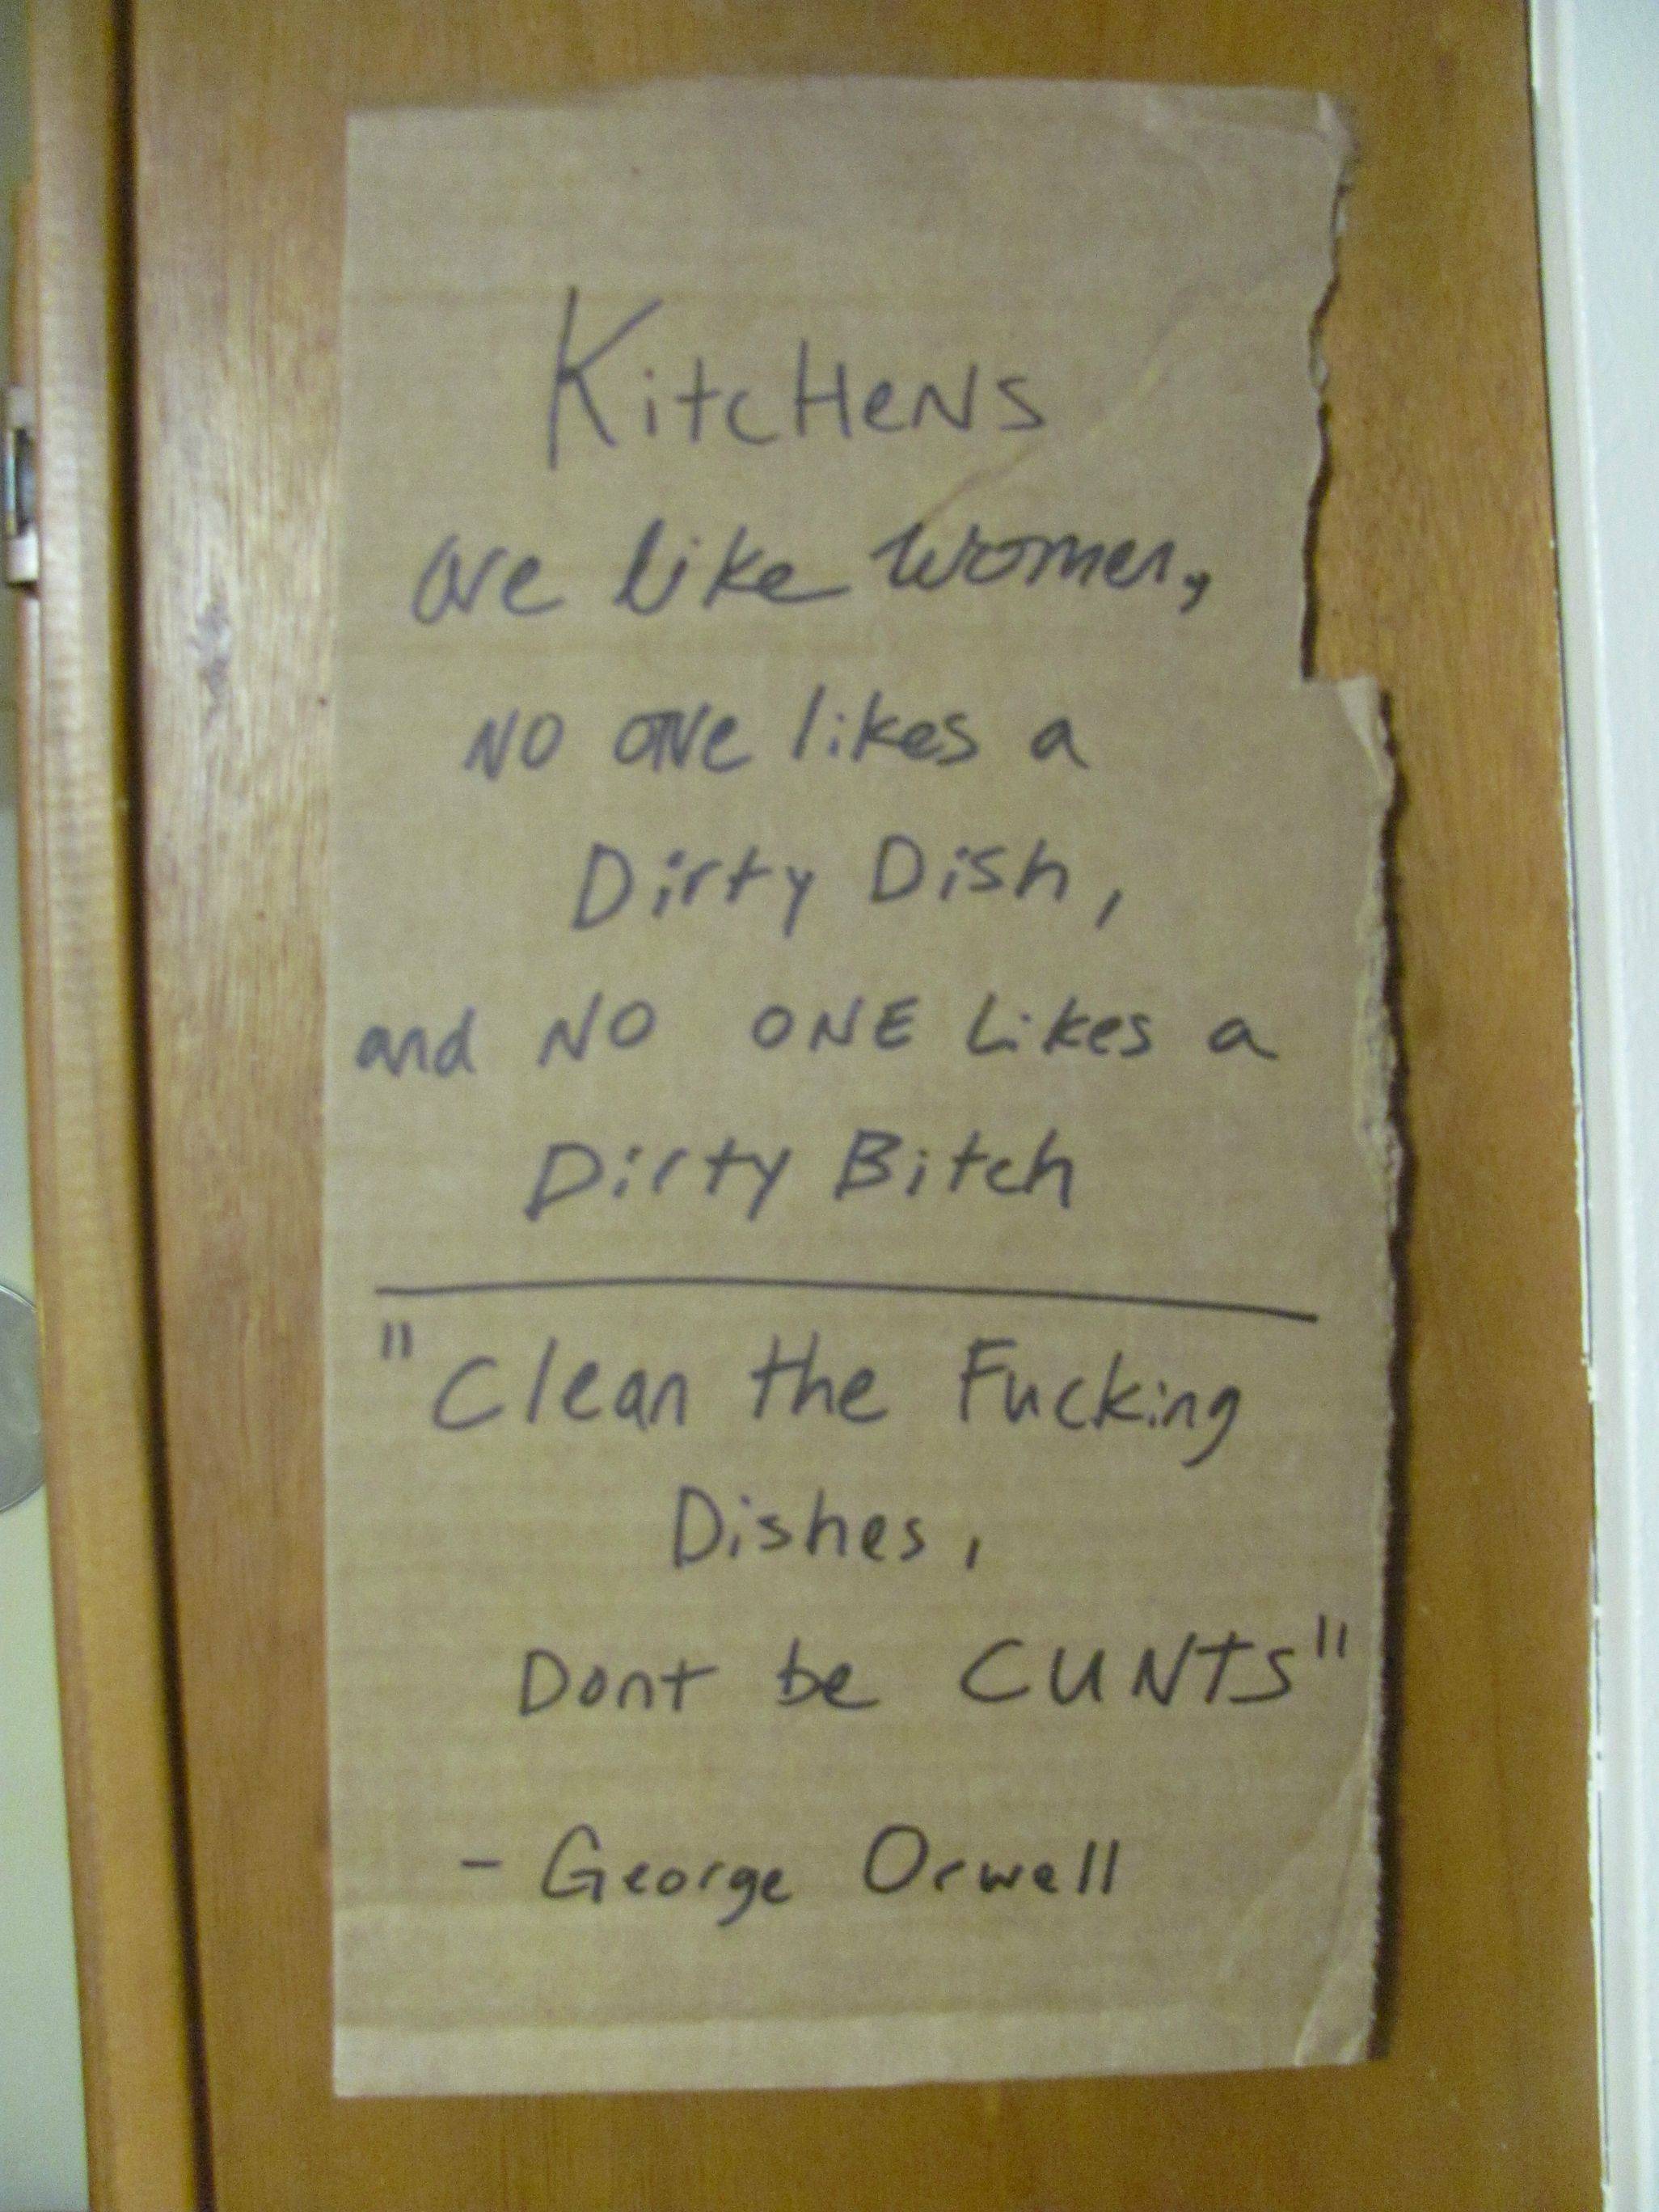 KitcHeNS
are like women,
NO ONe likes a
Dirty Dish,
and NO ONE Likes a
Dirty Bitch
"Clean the Fucking
Dishes,
Dont be CUNTS"
- George Orwell